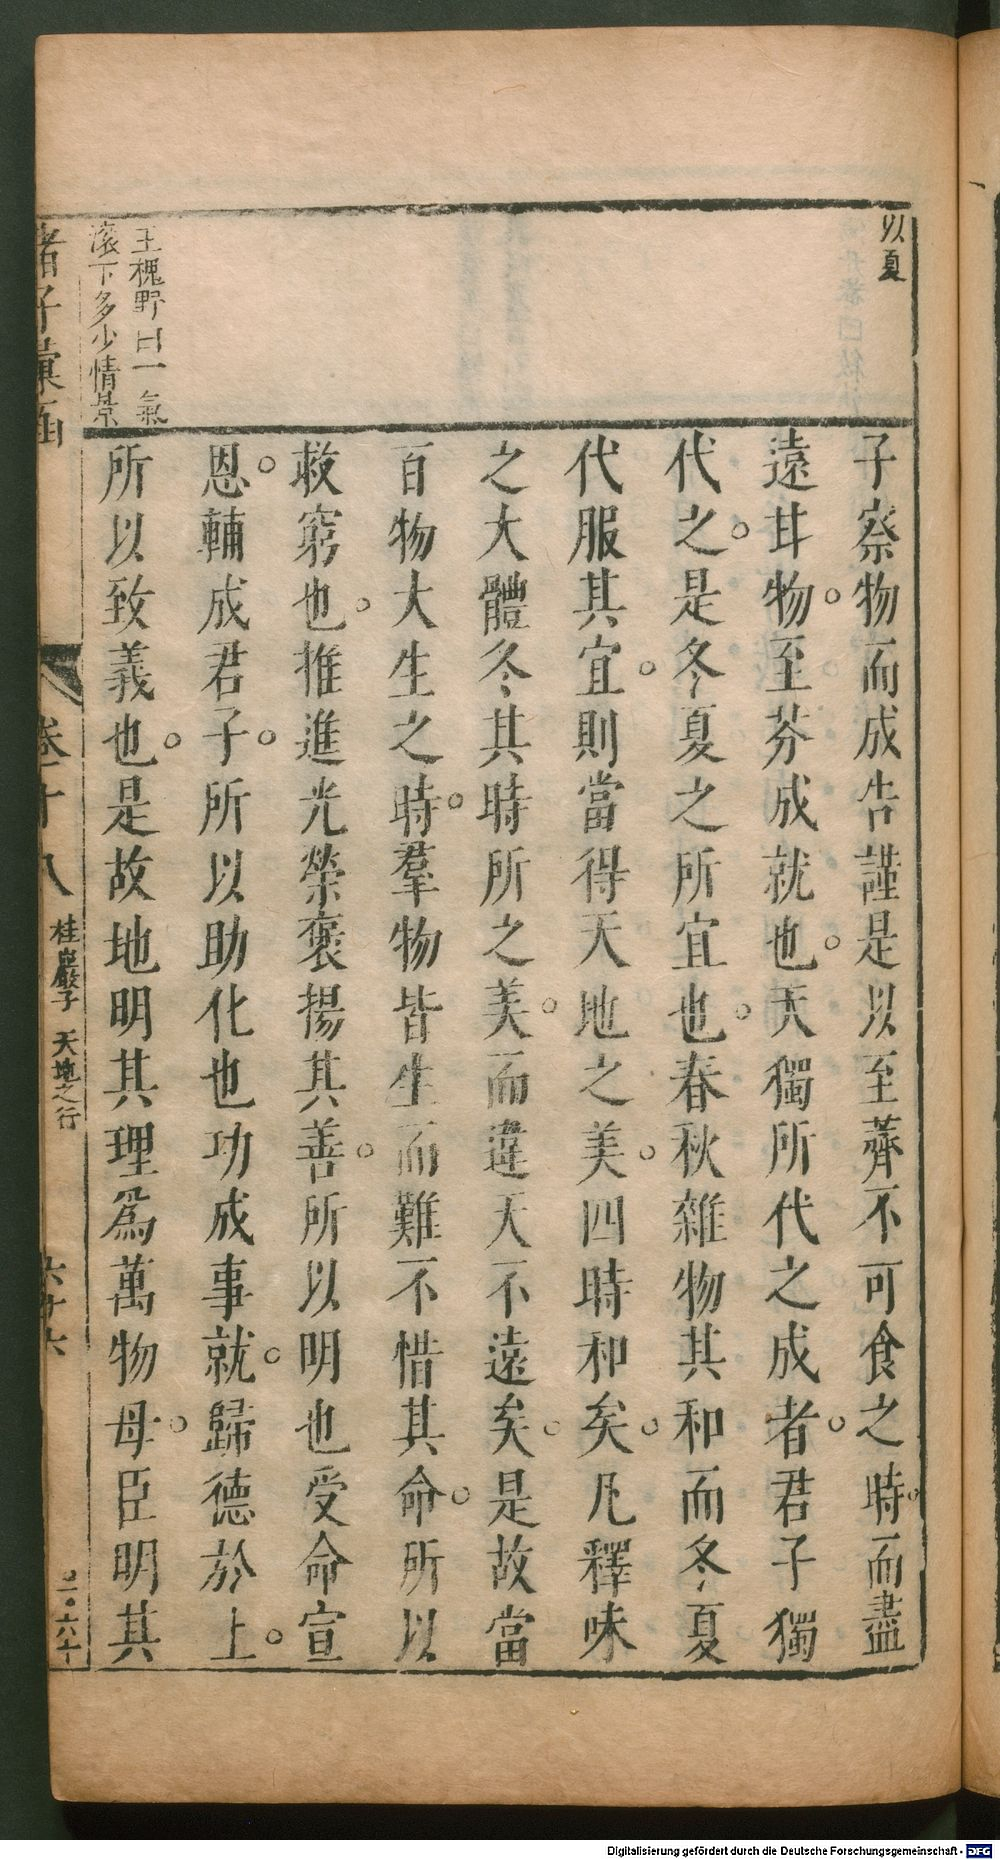 以夏
子察物而成告謹是以至薺不可食之時而盡
遠甘物至芬成就也天獨所代之成者君子獨
代之是冬夏之所宜也春秋雜物其和而冬夏
代服其宜則當得天地之美四時和矣凡釋味
之大體冬其時所之美而違天不遠矣是故當
百物大生之時羣物皆生而難不惜其命所以
救窮也推進光榮褒揚其善所以明也受命宣
恩輔成君子所以助化也功成事就歸德於上
所以致義也是故地明其理爲萬物母臣明其
王槐野曰一氣
滚下多少情景
諸子彙函
卷十八
桂巖子 天地之行
六十六
Digitalisierung gefördert durch die Deutsche Forschungsgemeinschaft - DFG